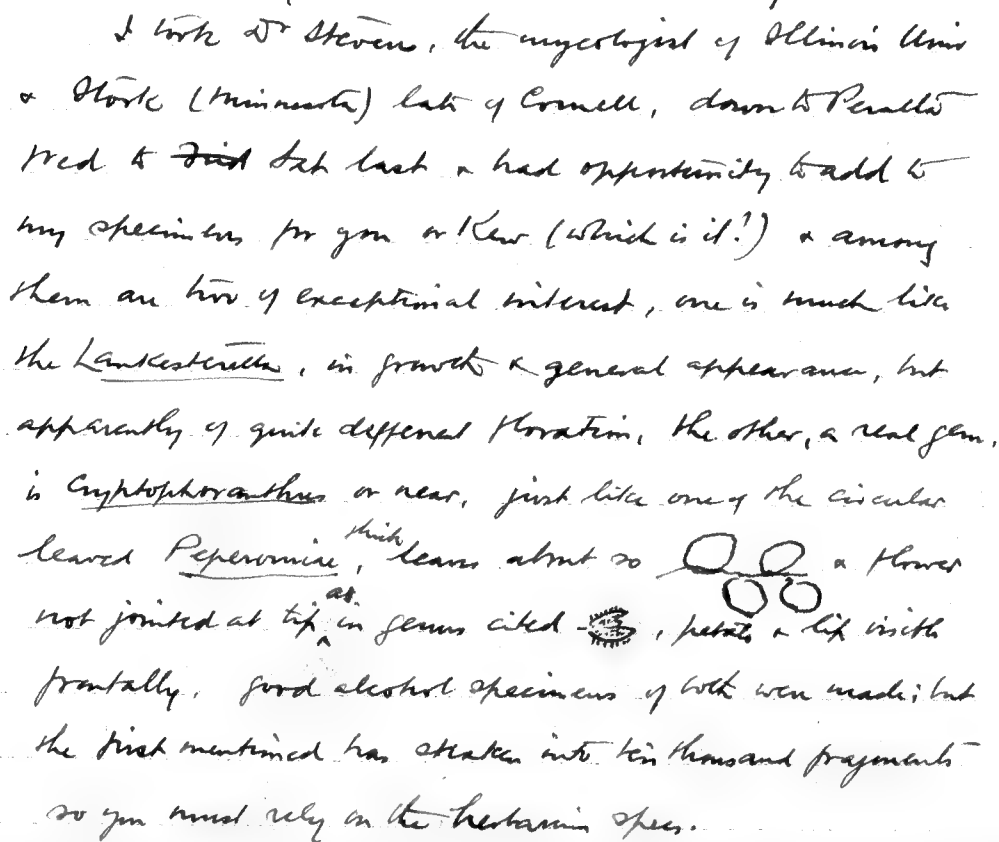 I took Dr Stevens, the mycologist of Illinois Univ
& Stork (Minnesota) late of Cornell, down to Peralta
Wed to Sat last & had opportunity to add to
my specimens for you or Kew (which is it!) & among
them are two of exceptional interest, one is much like
the Lankesterella, in growth & general appearance, but
apparently of quite different floration, the other, a real gem,
is Cryptophoranthus or near, just like one of the circular
leaved Peperomiae, thick leaves about so & flower
not jointed at tip as in genus cited, petals & lip visible
frontally. Good alcohol specimens of both were made; but
the first mentioned has shaken into ten thousand fragments
so you must rely on the herbarium specs.